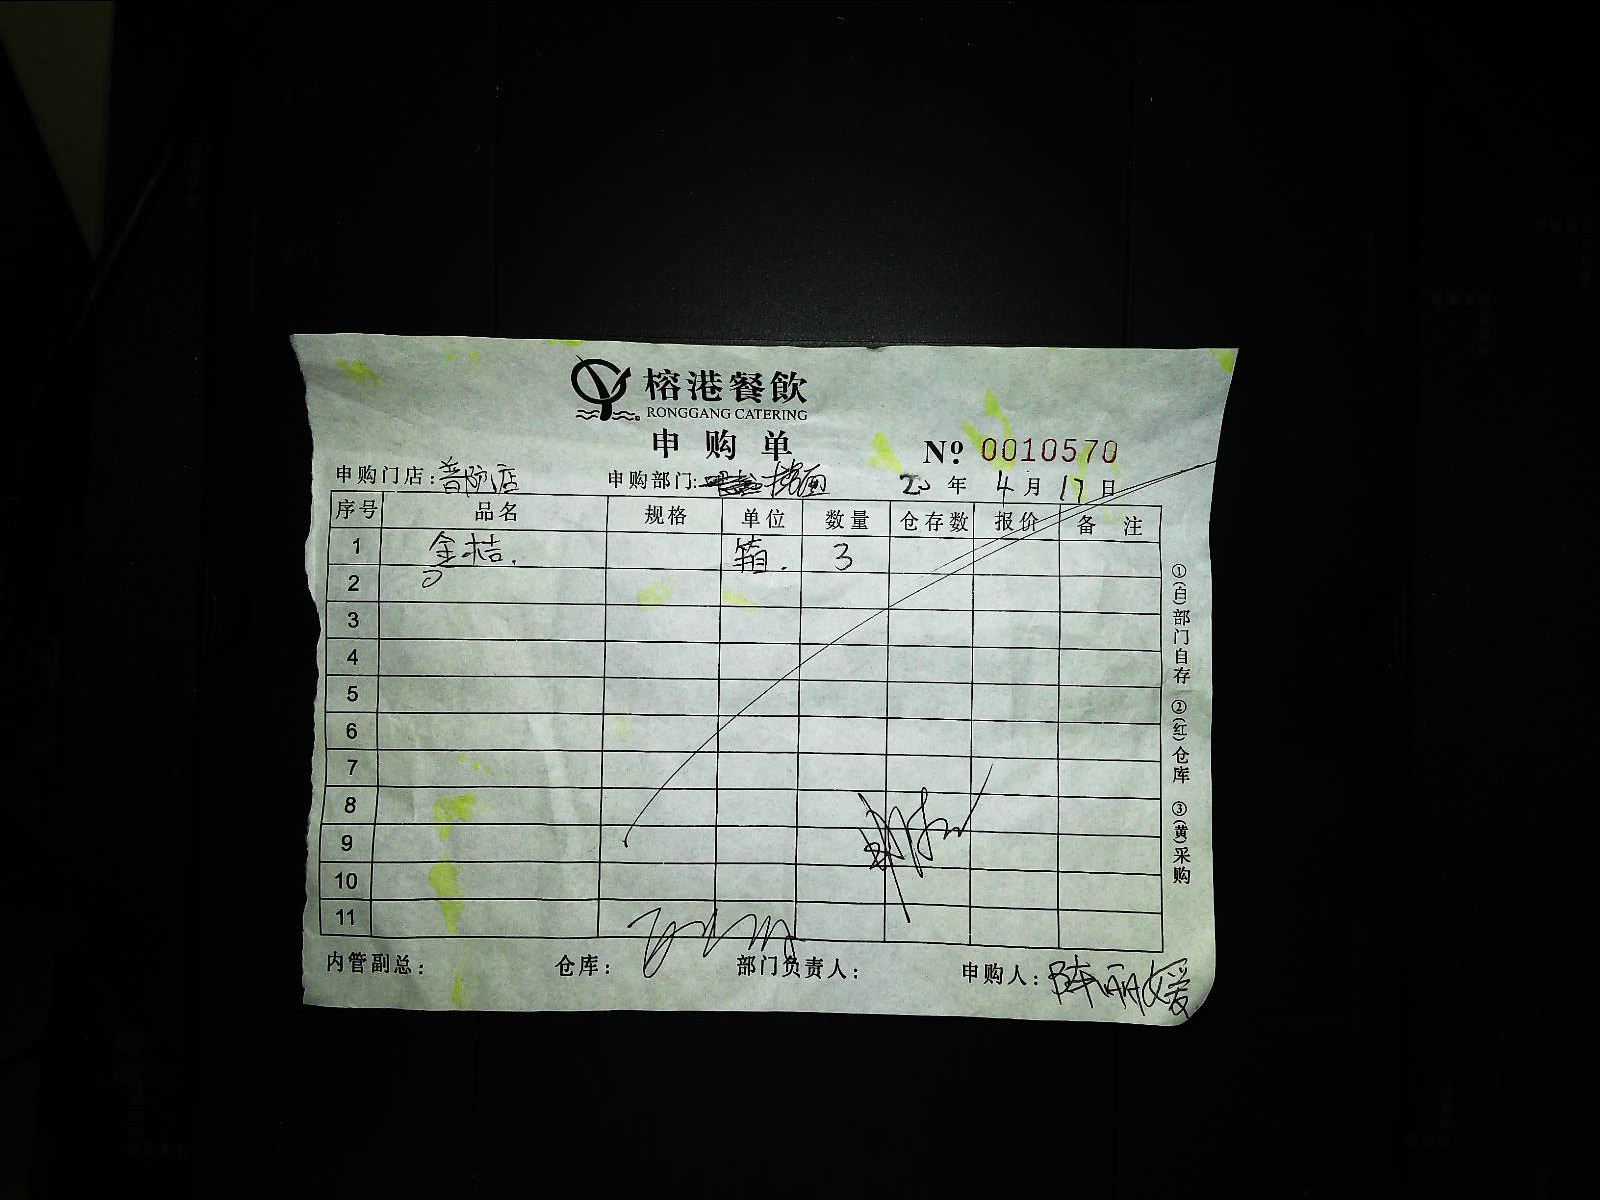 榕港餐飲
RONGGANG CATERING
申购单
№ 0010570
申购门店:普陀店 申购部门: 楼面 20年4月17日
序号 品名 规格 单位 数量 仓存数 报价 备注
1 金桔. 箱. 3
2
3
4
5
6
7
8
9
10
11
内管副总: 仓库: 部门负责人: 申购人:陈丽媛
①(白)部门自存 ②(红)仓库 ③(黄)采购